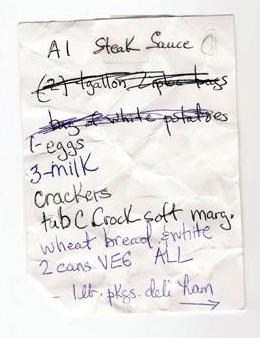 A1 Steak Sauce
(2) 1gallon Ziploc bags
bag of white potatoes
1-eggs
3-milk
Crackers
tub C Crock soft marg.
wheat bread & white
2 cans VEG ALL
- 1 lb. pkgs. deli Ham